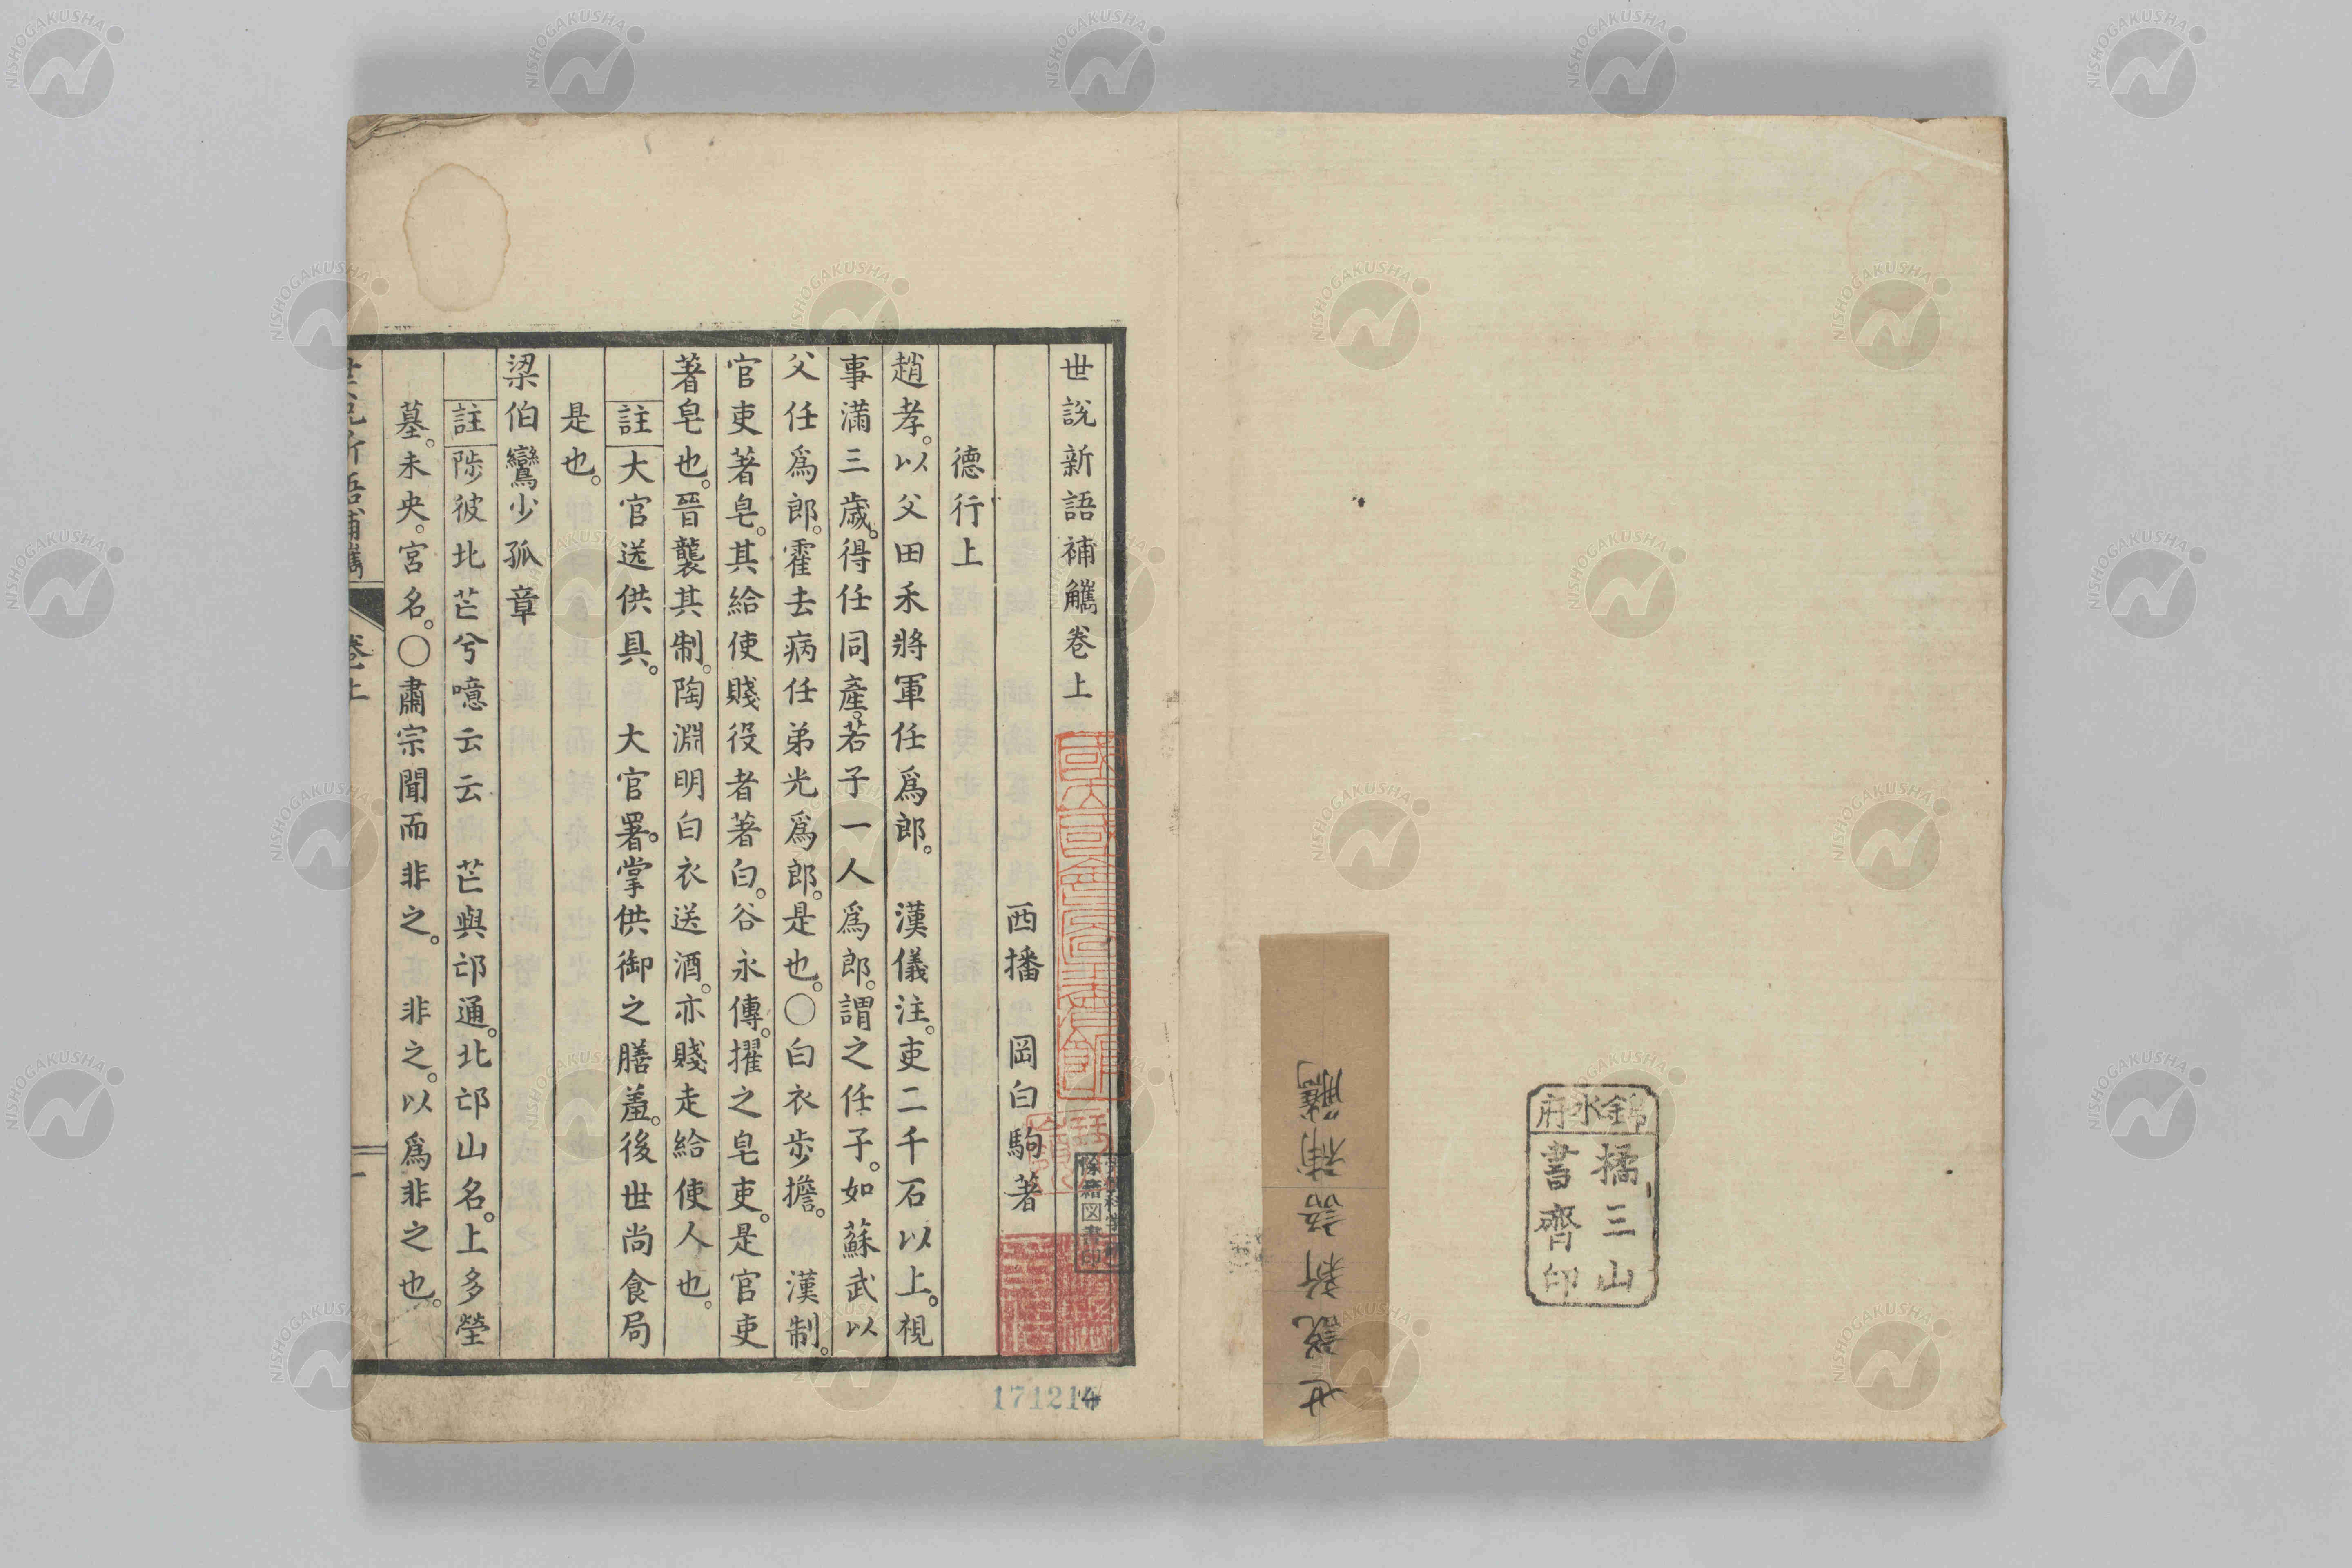 錦水府
橘三山
書齊印
世説新語補觿
世說新語補觿卷上
西播 岡白駒著
德行上
趙孝。以父田禾將軍任爲郎。 漢儀注。吏二千石以上。視
事滿三歲。得任同產。若子一人爲郎。謂之任子。如蘇武以
父任爲郎。霍去病任弟光爲郎。是也。〇白衣步擔。 漢制。
官吏著皂。其給使賤役者著白。谷永傳。擢之皂吏。是官吏
著皂也。晉襲其制。陶淵明白衣送酒。亦賤走給使人也。
註大官送供具。 大官署。掌供御之膳羞。後世尚食局
是也。
梁伯鸞少孤章
註陟彼北芒兮噫云云 芒與邙通。北邙山名。上多塋
墓。未央。宮名。〇肅宗聞而非之。 非之。以爲非之也。
世說新語補觿 卷上 一
171214
NISHOGAKUSHA